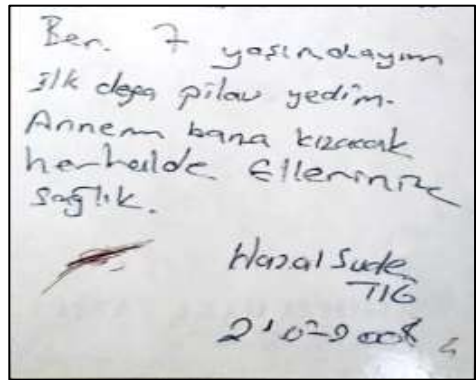 Ben. 7 yaşındayım
ilk defa pilav yedim.
Annem bana kızacak
herhalde. Ellerinize
sağlık.
Hazal Sude